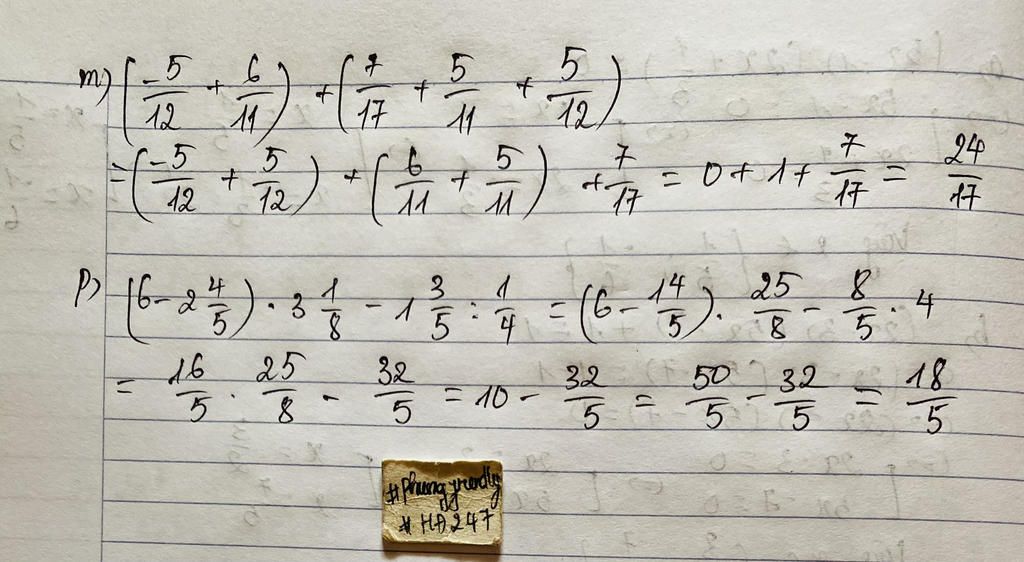 m) (-5/12 + 6/11) + (7/17 + 5/11 + 5/12)
= (-5/12 + 5/12) + (6/11 + 5/11) + 7/17 = 0 + 1 + 7/17 = 24/17
p) (6 - 2 4/5) · 3 1/8 - 1 3/5 : 1/4 = (6 - 14/5) · 25/8 - 8/5 · 4
= 16/5 · 25/8 - 32/5 = 10 - 32/5 = 50/5 - 32/5 = 18/5
# HD247